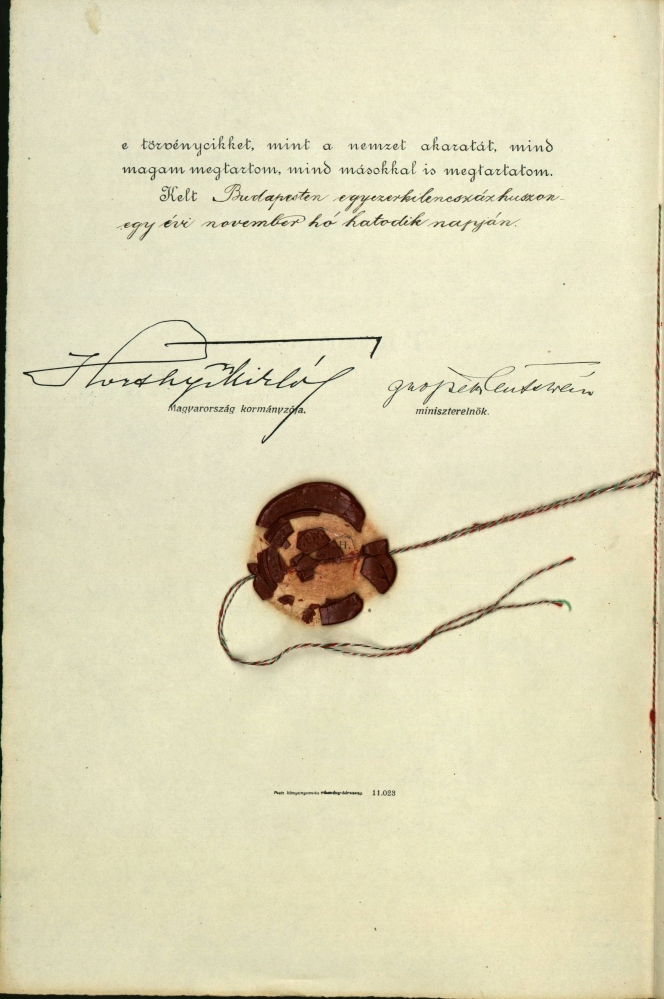 e törvénycikket, mint a nemzet akaratát, mind
magam megtartom, mind másokkal is megtartatom.
Kelt Budapesten egyezerkilencszázhuszon-
egy évi november hó hatodik napján.
Horthy Miklós
Magyarország kormányzója.
miniszterelnök.
H.
Pesti könyvnyomda részvény-társaság. 11.023